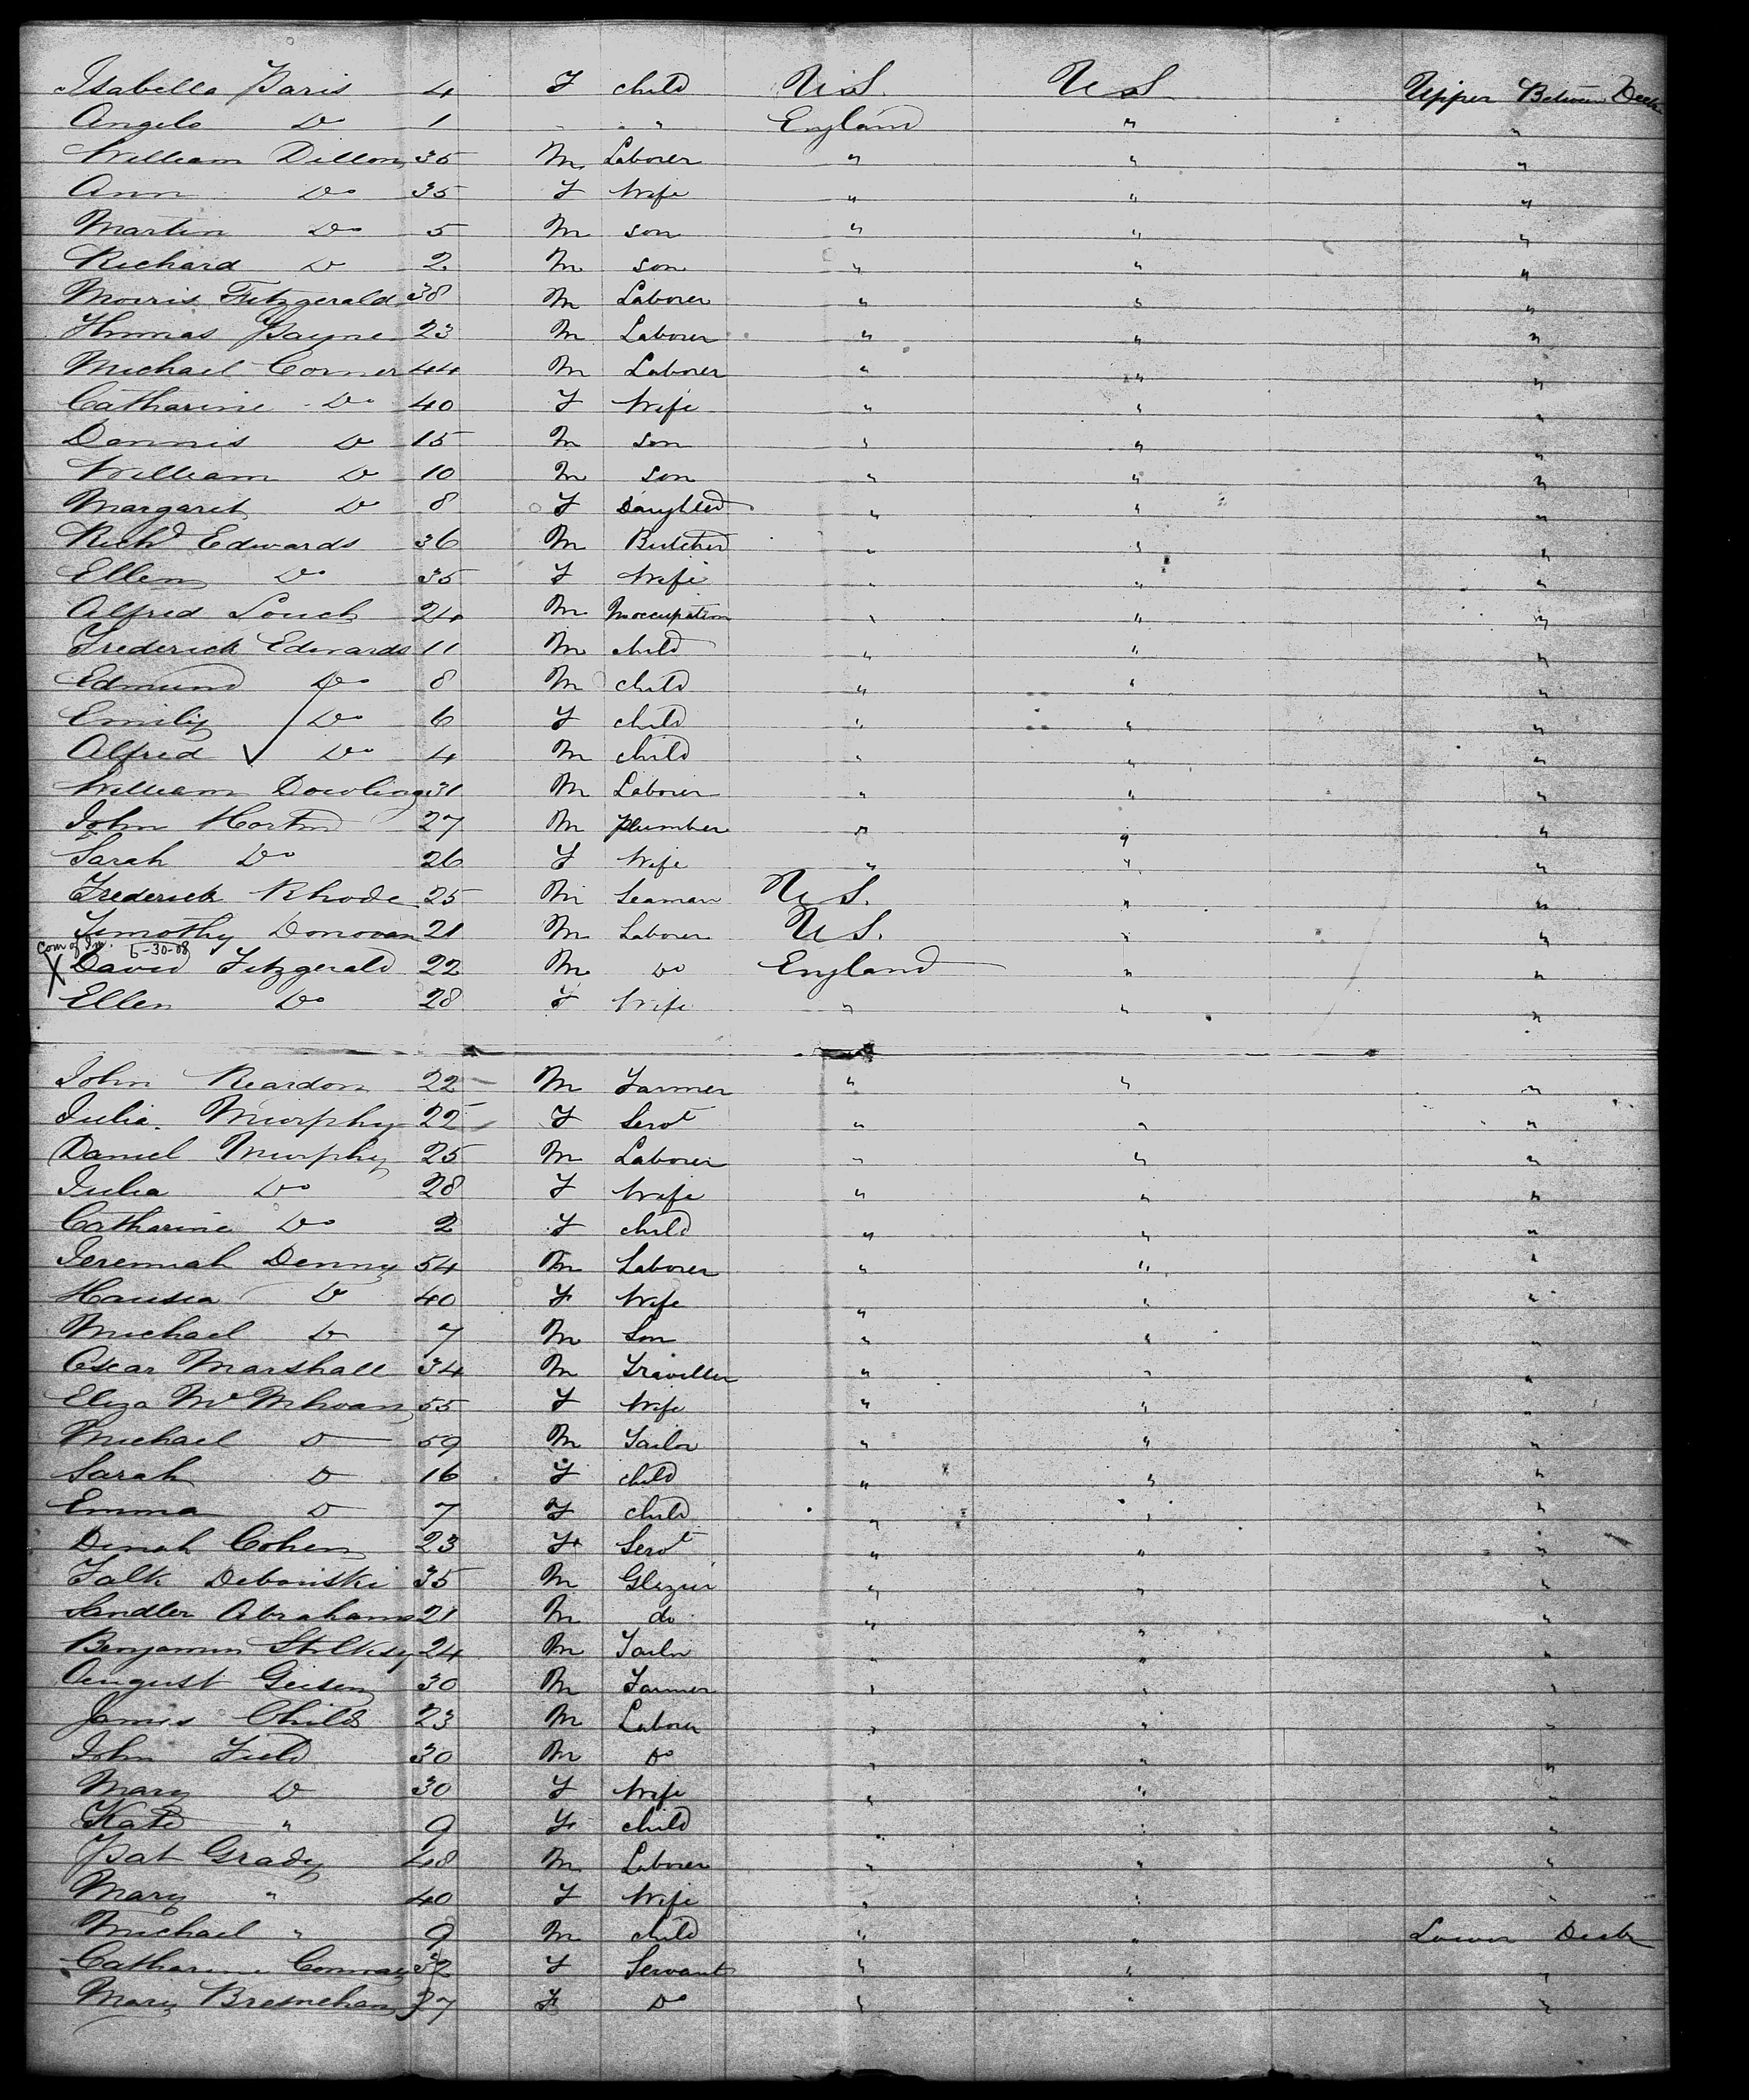 Isabella Paris 4 F child U.S. U.S Upper Between Decks
Angelo Do 1 " " England " "
William Dillon 35 M Laborer " " "
Ann Do 35 F Wife " " "
Martin Do 5 M son " " "
Richard Do 2 M son " " "
Morris Fitzgerald 38 M Laborer " " "
Thomas Payne 23 M Laborer " " "
Michael Conner 44 M Laborer " " "
Catharine Do 40 F Wife " " "
Dennis Do 15 M Son " " "
William Do 10 M Son " " "
Margaret Do 8 F Daughter " " "
Richd Edwards 36 M Butcher " " "
Ellen Do 35 F Wife " " "
Alfred Louch 24 M No occupation " " "
Frederick Edwards 11 M child " " "
Edmund Do 8 M child " " "
Emily Do 6 F child " " "
Alfred Do 4 M child " " "
William Dowling 31 M Laborer " " "
John Horton 27 M Plumber " " "
Sarah Do 26 F Wife " " "
Frederick Rhode 25 M Seaman U.S. " "
Timothy Donovan 21 M Laborer U.S. " "
Com of Im. 6-30-08
X David Fitzgerald 22 M Do England " "
Ellen Do 28 F Wife " " "
John Reardon 22 M Farmer " " "
Julia Murphy 22 F Servt " " "
Daniel Murphy 25 M Laborer " " "
Julia Do 28 F Wife " " "
Catharine Do 2 F child " " "
Jeremiah Denny 54 M Laborer " " "
Do 40 F Wife " " "
Michael Do 7 M Son " " "
Oscar Marshall 34 M Traveller " " "
Eliza 55 F Wife " " "
Michael D 59 M Tailor " " "
Sarah D 16 F child " " "
Emma D 7 F child " " "
Dinah Cohen 23 F Servt " " "
Falk Debonski 35 M Glazier " " "
Sandler Abrahams 21 M do " " "
Benjamin 24 M Tailor " " "
August Geisen 30 M Farmer " " "
James Childs 23 M Laborer " " "
John Field 30 M Do " " "
Mary Do 30 F Wife " " "
Kate " 9 F child " " "
Pat Grady 48 M Laborer " " "
Mary " 40 F Wife " " "
Michael " 9 M child " " Lower Deck
Catharine Conway 32 F Servant " " "
Mary 37 F Do " " "